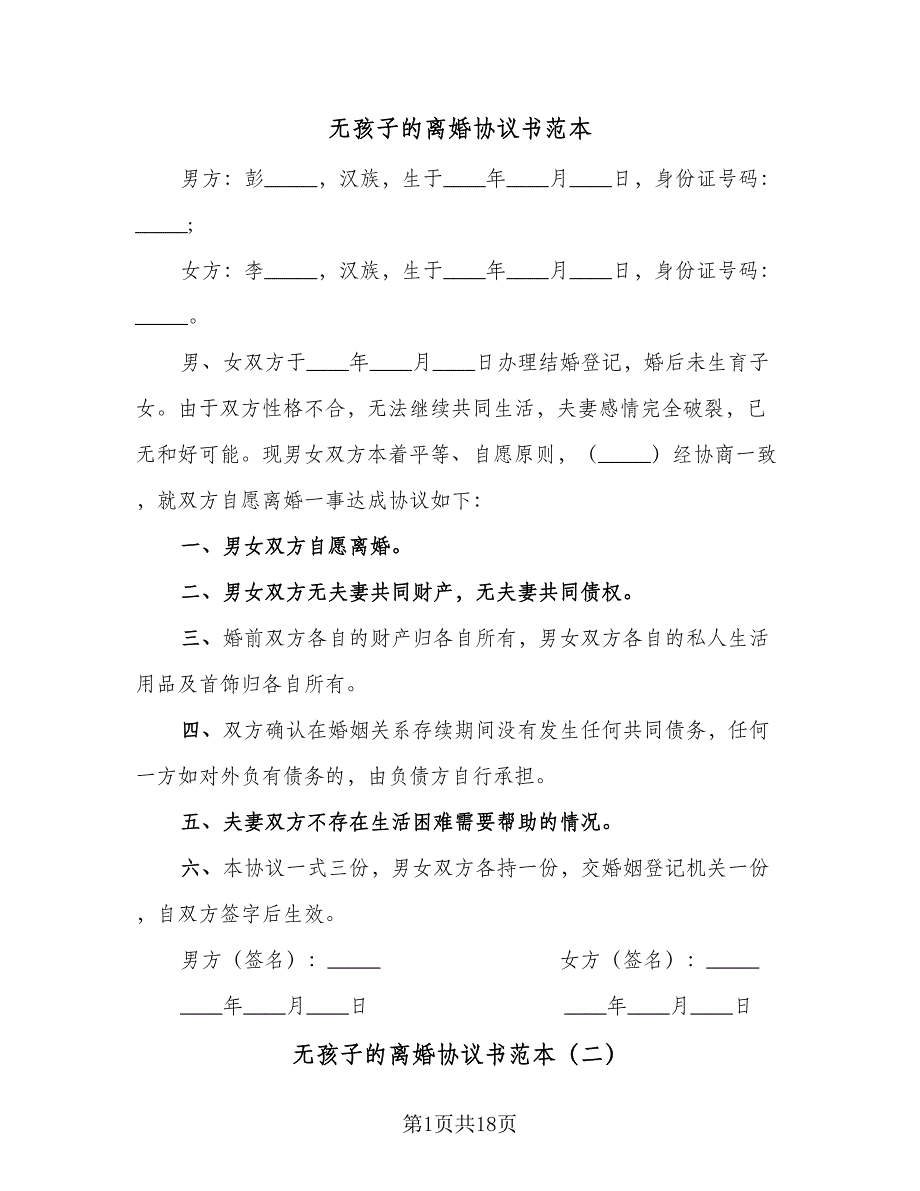 无孩子的离婚协议书范本
男方：彭_____，汉族，生于____年____月____日，身份证号码：
_____;
女方：李_____，汉族，生于____年____月____日，身份证号码：
_____。
男、女双方于____年____月____日办理结婚登记，婚后未生育子
女。由于双方性格不合，无法继续共同生活，夫妻感情完全破裂，已
无和好可能。现男女双方本着平等、自愿原则，（_____）经协商一致
，就双方自愿离婚一事达成协议如下：
一、男女双方自愿离婚。
二、男女双方无夫妻共同财产，无夫妻共同债权。
三、婚前双方各自的财产归各自所有，男女双方各自的私人生活
用品及首饰归各自所有。
四、双方确认在婚姻关系存续期间没有发生任何共同债务，任何
一方如对外负有债务的，由负债方自行承担。
五、夫妻双方不存在生活困难需要帮助的情况。
六、本协议一式三份，男女双方各持一份，交婚姻登记机关一份
，自双方签字后生效。
男方（签名）：_____ 女方（签名）：_____
____年____月____日 ____年____月____日
无孩子的离婚协议书范本（二）
第1页共18页